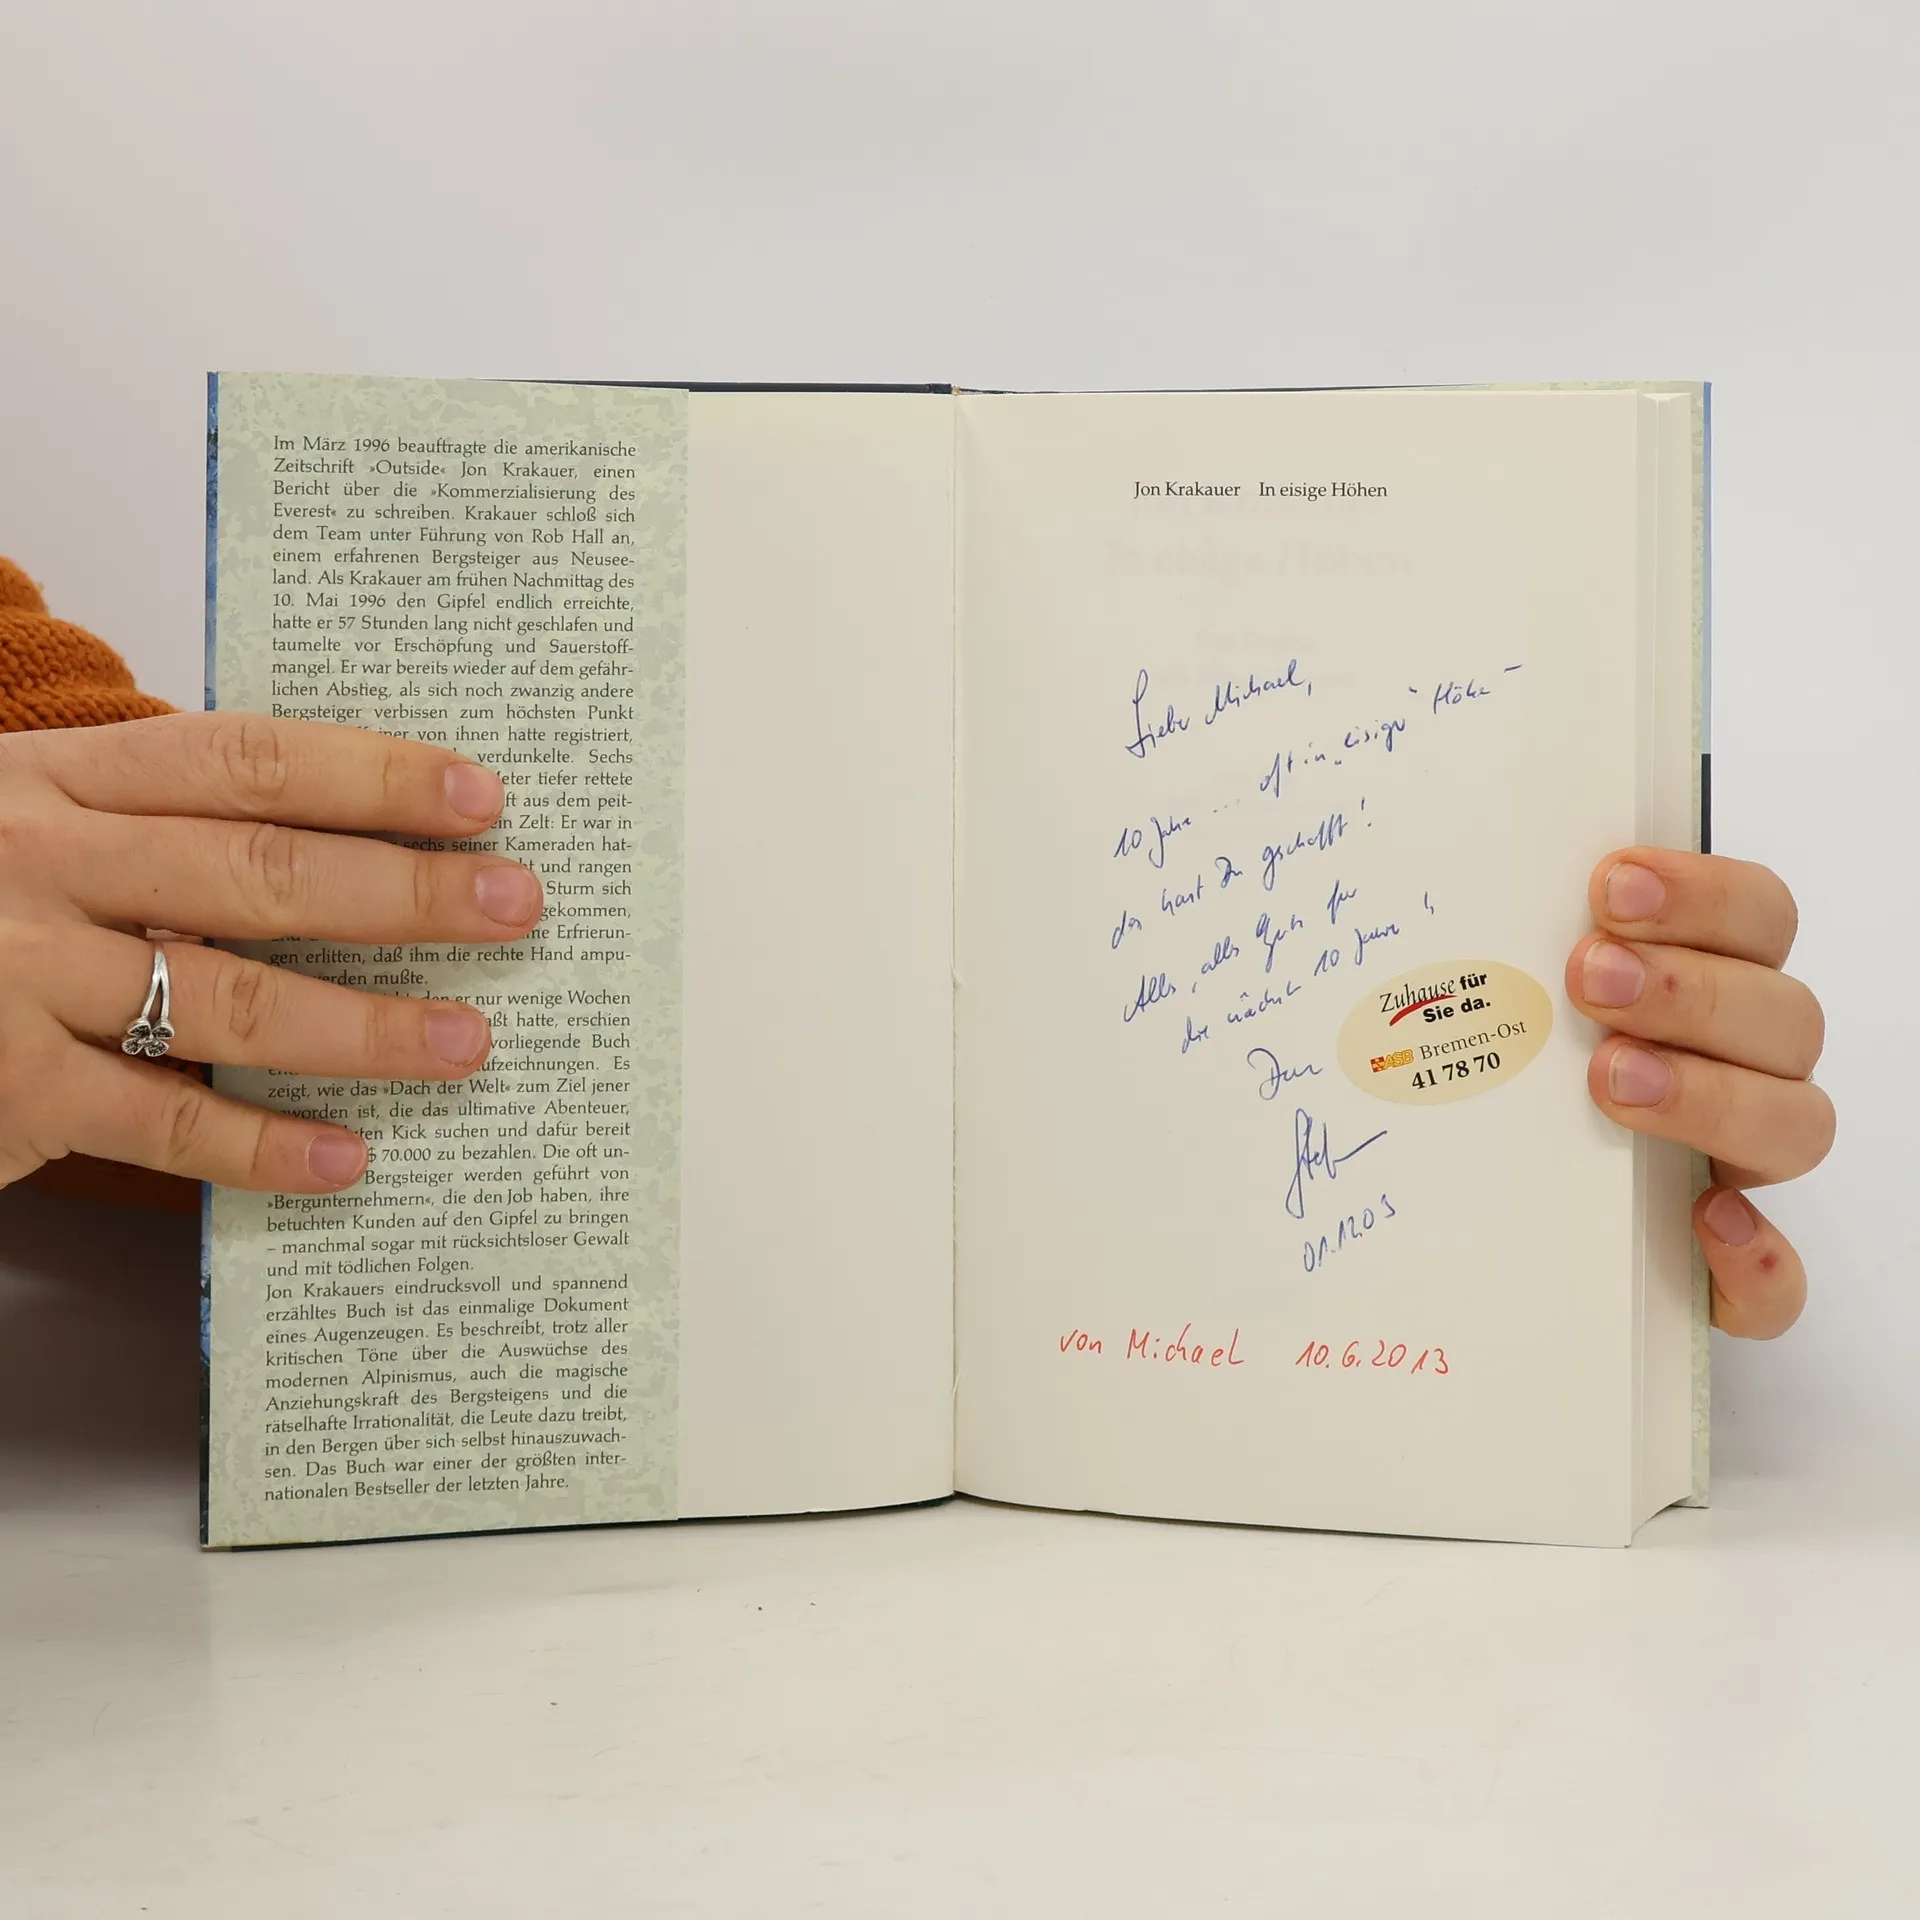 Im März 1996 beauftragte die amerikanische
Zeitschrift »Outside« Jon Krakauer, einen
Bericht über die »Kommerzialisierung des
Everest« zu schreiben. Krakauer schloß sich
dem Team unter Führung von Rob Hall an,
einem erfahrenen Bergsteiger aus Neusee-
land. Als Krakauer am frühen Nachmittag des
10. Mai 1996 den Gipfel endlich erreichte,
hatte er 57 Stunden lang nicht geschlafen und
taumelte vor Erschöpfung und Sauerstoff-
mangel. Er war bereits wieder auf dem gefähr-
lichen Abstieg, als sich noch zwanzig andere
Bergsteiger verbissen zum höchsten Punkt
von ihnen hatte registriert,
verdunkelte. Sechs
tiefer rettete
aus dem peit-
ein Zelt: Er war in
sechs seiner Kameraden hat-
und rangen
Sturm sich
gekommen,
Erfrierun-
gen erlitten, daß ihm die rechte Hand ampu-
werden mußte.
er nur wenige Wochen
hatte, erschien
vorliegende Buch
Es
zeigt, wie das »Dach der Welt« zum Ziel jener
geworden ist, die das ultimative Abenteuer,
Kick suchen und dafür bereit
$ 70.000 zu bezahlen. Die oft un-
Bergsteiger werden geführt von
»Bergunternehmern«, die den Job haben, ihre
betuchten Kunden auf den Gipfel zu bringen
– manchmal sogar mit rücksichtsloser Gewalt
und mit tödlichen Folgen.
Jon Krakauers eindrucksvoll und spannend
erzähltes Buch ist das einmalige Dokument
eines Augenzeugen. Es beschreibt, trotz aller
kritischen Töne über die Auswüchse des
modernen Alpinismus, auch die magische
Anziehungskraft des Bergsteigens und die
rätselhafte Irrationalität, die Leute dazu treibt,
in den Bergen über sich selbst hinauszuwach-
sen. Das Buch war einer der größten inter-
nationalen Bestseller der letzten Jahre.
Jon Krakauer In eisige Höhen
Lieber Michael,
10 Jahre ... oft in „eisiger" Höhe –
das hast Du geschafft!
Alles, alles Gute für
die nächsten 10 Jahre!
Dein
01.12.03
Zuhause für
Sie da.
ASB Bremen-Ost
41 78 70
von Michael 10.6.2013